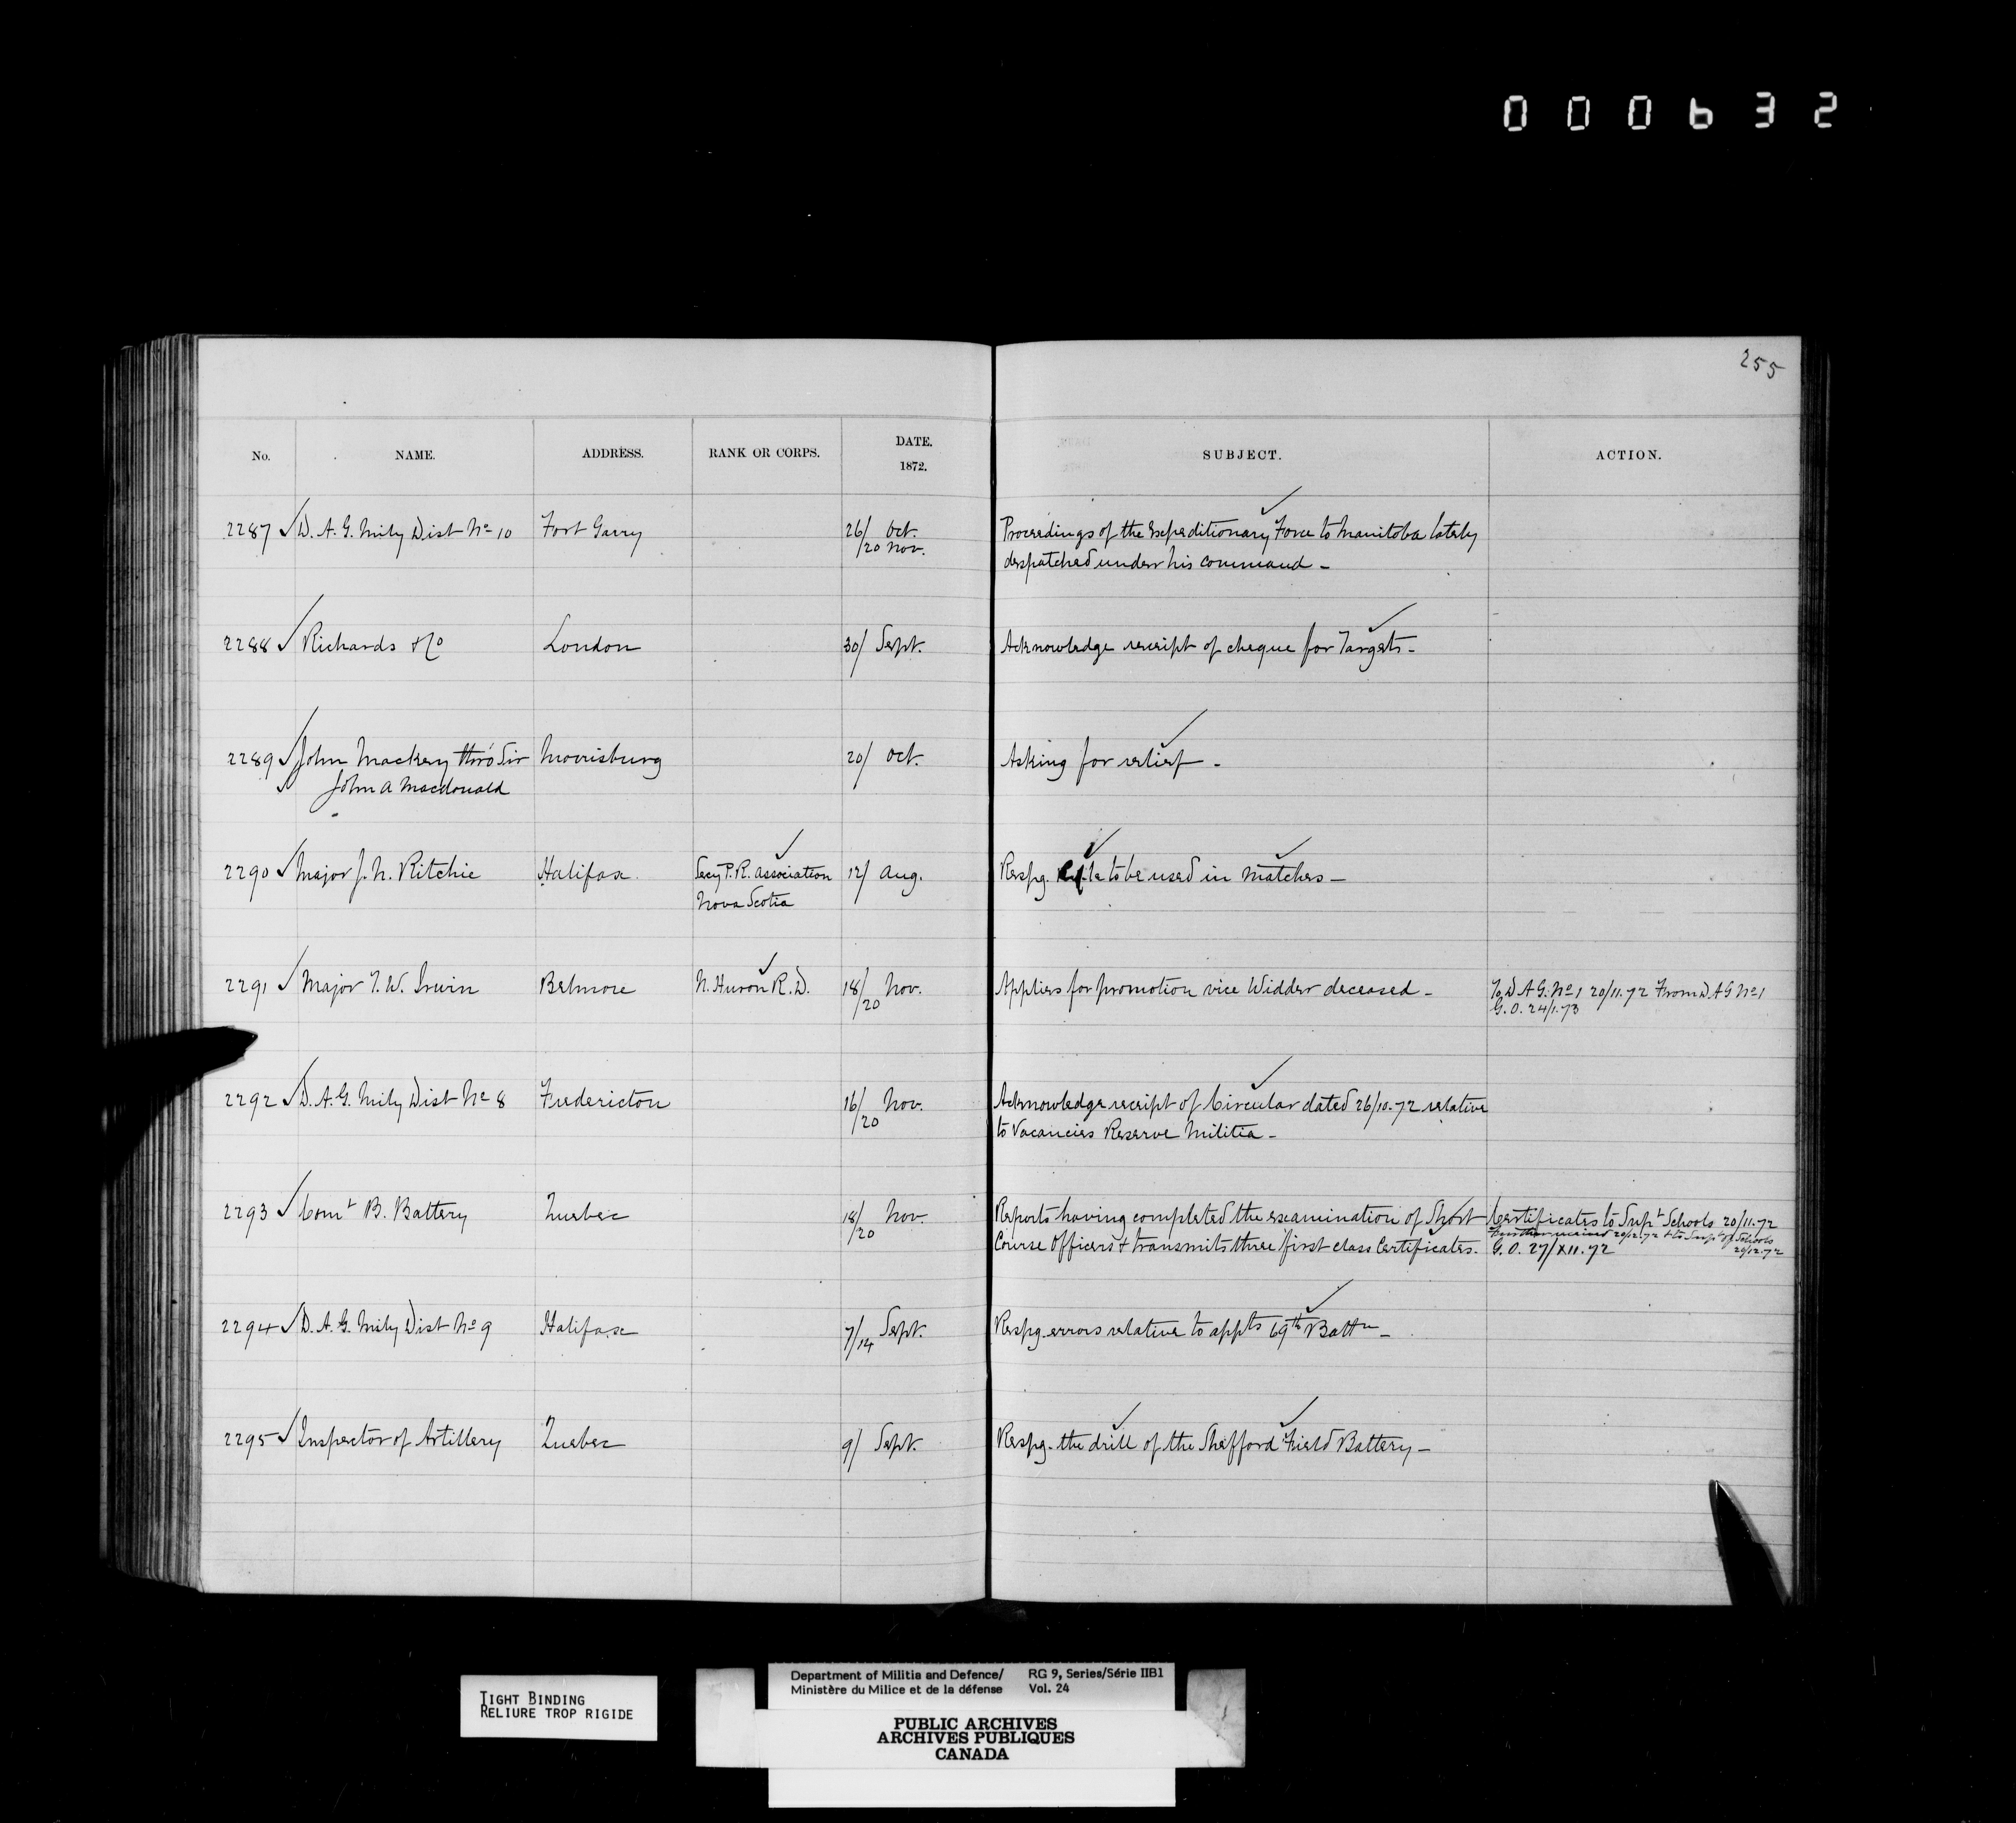 000632
255
No. NAME. ADDRESS. RANK OR CORPS. DATE. 1872. SUBJECT. ACTION.
2287 D. A. G. Mily Dist No 10 Fort Garry 26/20 Oct. Nov. Proceedings of the Expeditionary Force to Manitoba lately
despatched under his command -
2288 Richards & Co London 30/ Sept. Acknowledge receipt of cheque for Targets -
2289 John Mackey thro' Sir Morrisburg 20/ Oct. Asking for relief -
John A Macdonald
2290 Major J. N. Ritchie Halifax Secy P. R. Association 12/ Aug. Respg. Rifle to be used in Matches -
Nova Scotia
2291 Major T. W. Irwin Belmore N. Huron R. D. 18/20 Nov. Applies for promotion vice Widder deceased - To D A G. No 1 20/11.72 From D A G No 1
G. O. 24/1.73
2292 D. A. G. Mily Dist No 8 Fredericton 16/20 Nov. Acknowledge receipt of Circular dated 26/10.72 relative
to Vacancies Reserve Militia -
2293 Comt B. Battery Quebec 18/20 Nov. Reports having completed the examination of Short Certificates to Supt Schools 20/11.72
Further received 20/12.72 & to Supt of Schools
20/12.72
Course Officers & transmits three first class Certificates. G. O. 27/XII.72
2294 D. A. G. Mily Dist No 9 Halifax 7/14 Sept. Respg. errors relative to appts 69th Battn -
2295 Inspector of Artillery Quebec 9/ Sept. Respg. the drill of the Shefford Field Battery -
TIGHT BINDING
RELIURE TROP RIGIDE
Department of Militia and Defence/ RG 9, Series/Série IIB1
Ministère du Milice et de la défense Vol. 24
PUBLIC ARCHIVES
ARCHIVES PUBLIQUES
CANADA